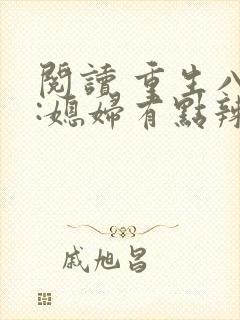 閱讀 重生八
:媳婦有點辣
戚旭昌